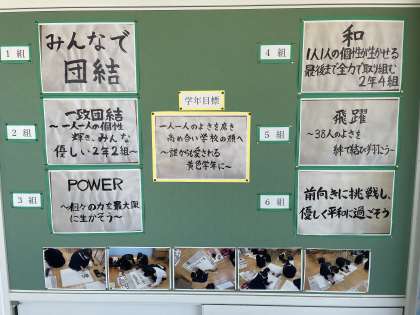 1組
みんなで
団結
2組
一致団結
～一人一人の個性
輝き、みんな
優しい2年2組～
3組
POWER
～個々の力を最大限
に生かそう～
学年目標
一人一人のよさを磨き
高め合い学校の顔へ
～誰からも愛される
黄色学年に～
4組
和
1人1人の個性が生かせる
最後まで全力で取り組む
2年4組
5組
飛躍
～38人のよさを
絆で結び羽ばたこう～
6組
前向きに挑戦し、
優しく平和に過ごそう